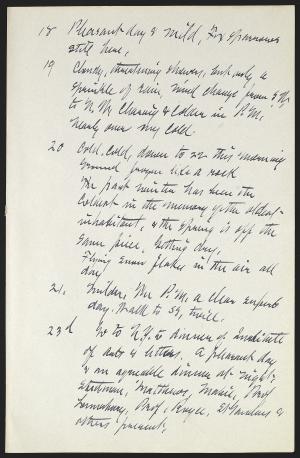 18 Pleasant day & mild, Fox sparrows
still here,
19 Cloudy, threatening showers, but only a
sprinkle of rain, wind changed from S.W.
to N.W. Clearing & colder in P.M.
Nearly over my cold.
20 Cold, cold, down to 22 this morning
Ground frozen like a rock
The past winter has been the
coldest in the memory of the oldest
inhabitant, & the spring is off the
same piece. Nothing doing.
Flying snow flakes in the air all
day
21. Milder, the P.M. a clear superb
day. Walk to S.S. twice.
23d Go to N.Y. to dinner of Institute
of arts & letters. A pleasant day
& an agreeable dinner at night;
Stedman, Matthews, Mabie, Prof
Lounsbury, Prof, &
others present,